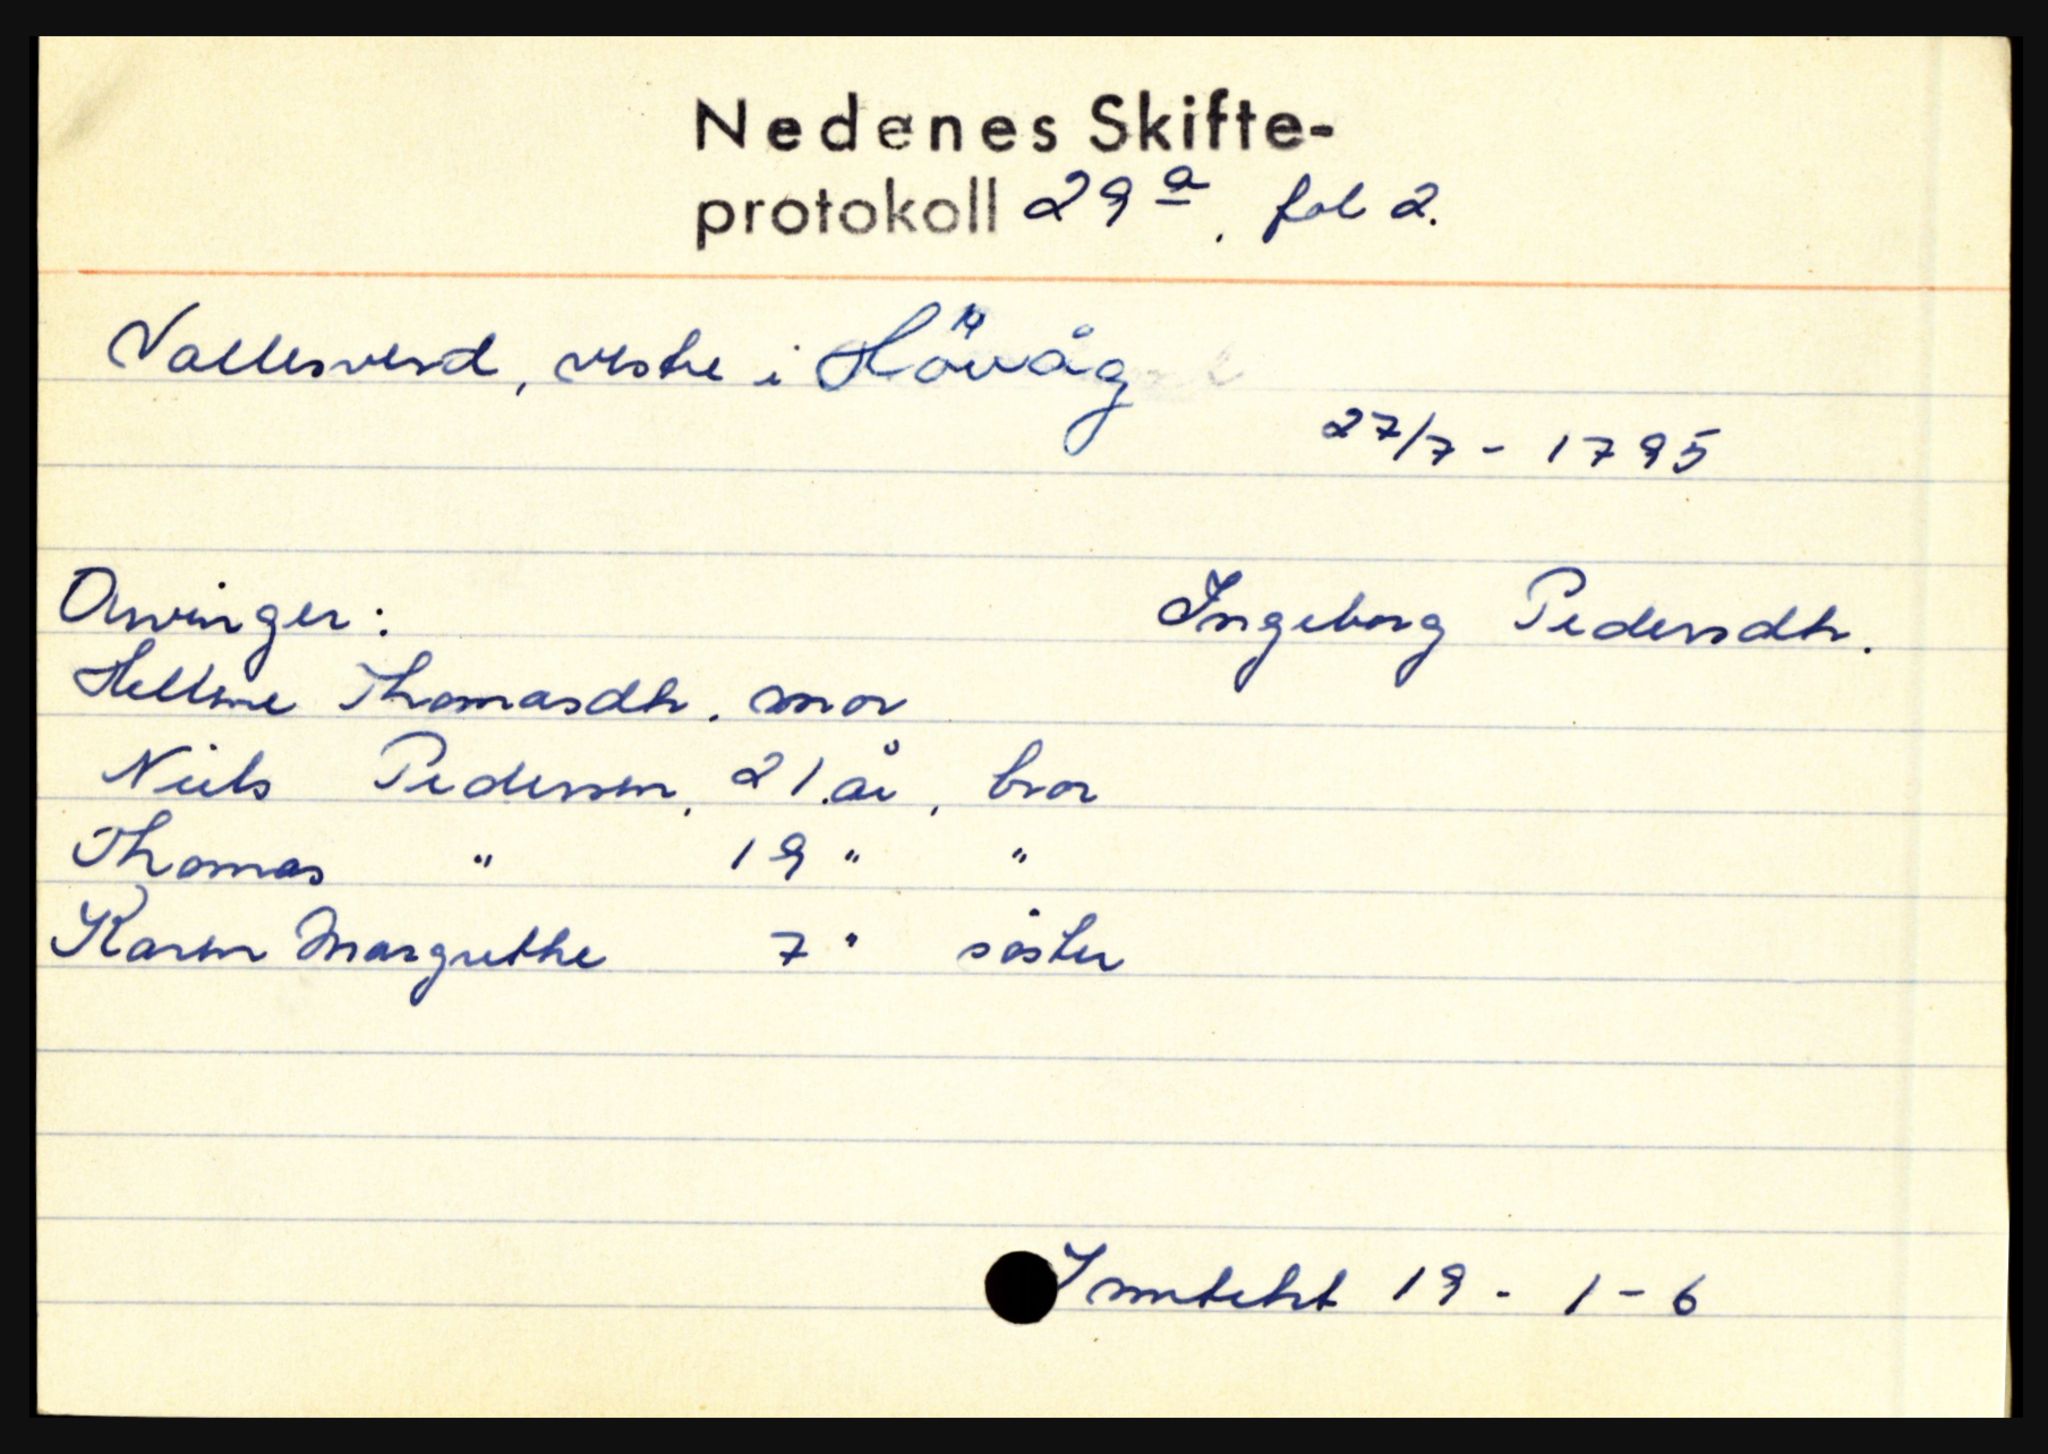 Nedenes Skifte-
protokoll 29 a. fol 2.
Vallesverd, vestre i Hövåg
27/7 - 1795
Arvinger:
Ingeborg Pedersdtr.
Hellene Thomasdtr. mor
Niels Pedersen, 21 år, bror
Thomas " 19 " "
Karen Margrethe 7 " söster
Inntekt 19 - 1 - 6